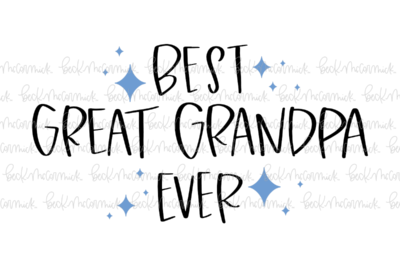 BEST
GREAT GRANDPA
EVER